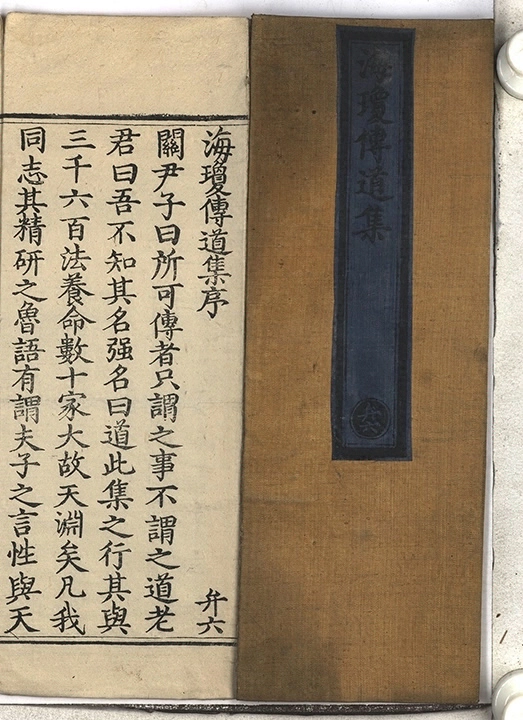 海瓊傳道集
海瓊傳道集序 弁六
關尹子曰所可傳者只謂之事不謂之道老
君曰吾不知其名强名曰道此集之行其與
三千六百法養命數十家大故天淵矣凡我
同志其精研之魯語有謂夫子之言性與天